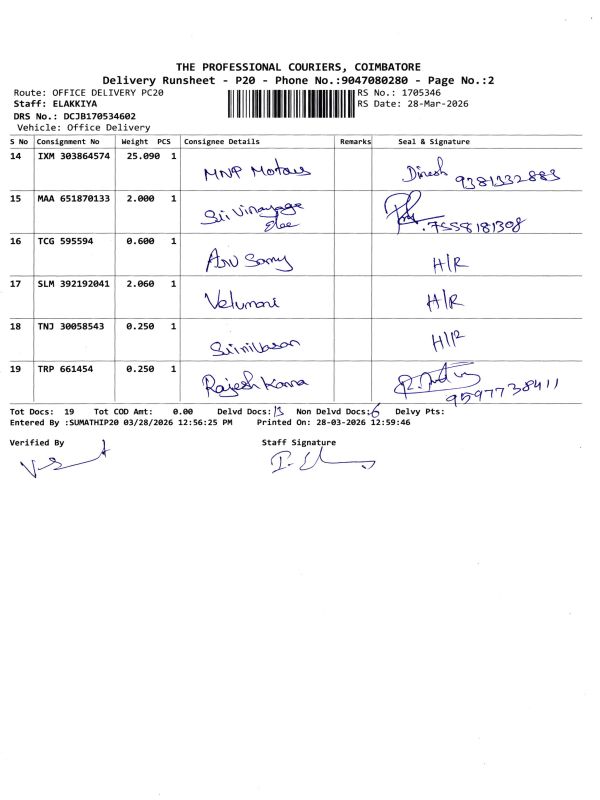 THE PROFESSIONAL COURIERS, COIMBATORE
Delivery Runsheet - P20 - Phone No.:9047080280 - Page No.:2
Route: OFFICE DELIVERY PC20 RS No.: 1705346
Staff: ELAKKIYA RS Date: 28-Mar-2026
DRS No.: DCJB170534602
Vehicle: Office Delivery
S No Consignment No Weight PCS Consignee Details Remarks Seal & Signature
14 IXM 303864574 25.090 1 MNP Motors Dinesh 9381332883
15 MAA 651870133 2.000 1 Sri Vinayaga Elec 7558181308
16 TCG 595594 0.600 1 Samy H/R
17 SLM 392192041 2.060 1 Velumani H/R
18 TNJ 30058543 0.250 1 Srinivasan H/R
19 TRP 661454 0.250 1 Rajesh Kanna 9597738411
Tot Docs: 19 Tot COD Amt: 0.00 Delvd Docs: 13 Non Delvd Docs: 6 Delvy Pts:
Entered By :SUMATHIP20 03/28/2026 12:56:25 PM Printed On: 28-03-2026 12:59:46
Verified By Staff Signature